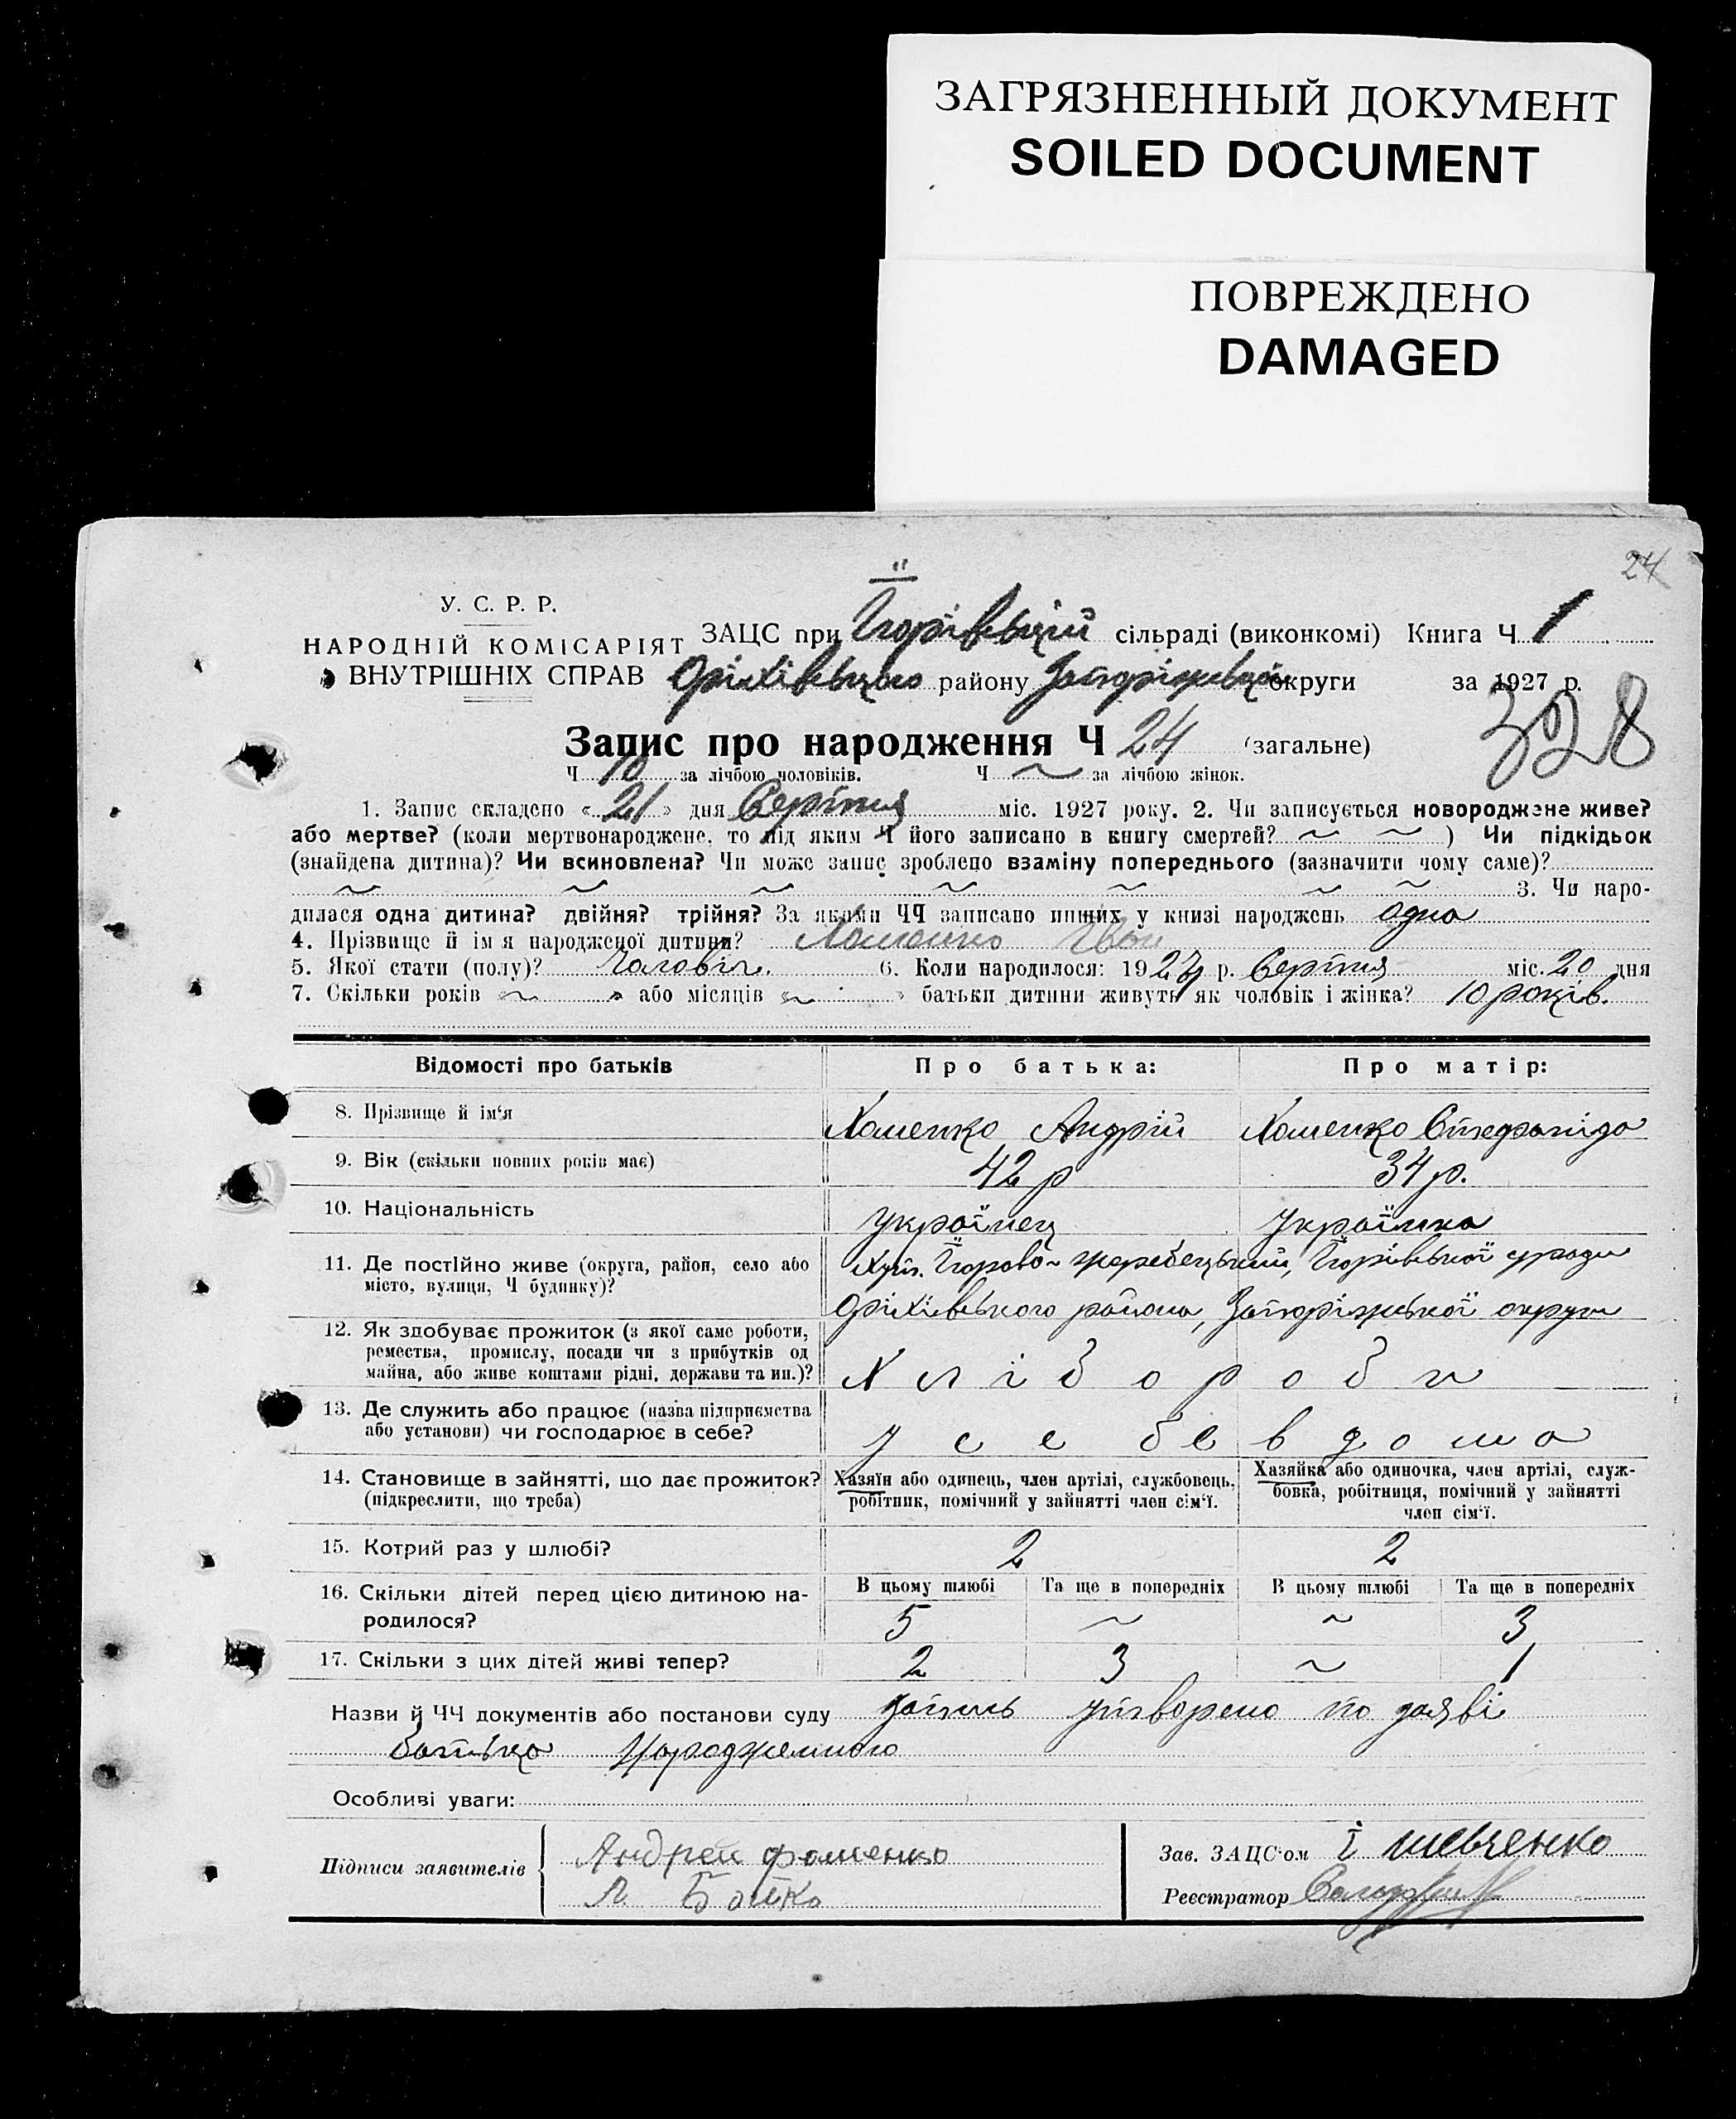 ЗАГРЯЗНЕННЫЙ ДОКУМЕНТ
SOILED DOCUMENT
ПОВРЕЖДЕНО
DAMAGED
24
У. С. Р. Р.
НАРОДНІЙ КОМІСАРІЯТ
ВНУТРІШНІХ СПРАВ
ЗАЦС при сільраді (виконкомі) Книга Ч. 1
Оріхівського району Запоріжської округи за 1927 р.
328
Запис про народження Ч 24 (загальне)
Ч 10 за лічбою чоловіків. Ч ~ за лічбою жінок.
1. Запис складено « 21 » дня Серпня міс. 1927 року. 2. Чи записується новороджене живе?
або мертве? (коли мертвонароджене, то під яким Ч його записано в книгу смертей? ~ ~ ) Чи підкідьок
(знайдена дитина)? Чи всиновлена? Чи може запис зроблено взаміну попереднього (зазначити чому саме)?
~ ~ ~ ~ ~ ~ ~ 3. Чи наро-
дилася одна дитина? двійня? трійня? За якими ЧЧ записано инших у книзі народжень одна
4. Прізвище й ім я народженої дитини? Хоменко Іван
5. Якої стати (полу)? Чоловіч. 6. Коли народилося: 1927 р. Серпня міс. 20 дня
7. Скільки років « ~ » або місяців « ~ » батьки дитини живуть як чоловік і жінка? 10 років.
Відомості про батьків Про батька: Про матір:
8. Прізвище й ім'я Хоменко Андрій Хоменко Степанида
9. Вік (скільки повних років має) 42 р 34 р.
10. Національність Українец Українка
11. Де постійно живе (округа, район, село або
місто, вулиця, Ч будинку)?
Хут.
Оріхівського района, Запоріжської округи
12. Як здобуває прожиток (з якої саме роботи,
ремества, промислу, посади чи з прибутків од
майна, або живе коштами рідні, держави та ин.)?
Хлібороби
13. Де служить або працює (назва підприємства
або установи) чи господарює в себе?
у себе в дома
14. Становище в зайнятті, що дає прожиток?
(підкреслити, що треба)
Хазяїн або одинець, член артілі, службовець,
робітник, помічний у зайнятті член сім'ї.
Хазяйка або одиночка, член артілі, служ-
бовка, робітниця, помічний у зайнятті
член сім'ї.
15. Котрий раз у шлюбі? 2 2
16. Скільки дітей перед цією дитиною на-
родилося?
В цьому шлюбі Та ще в попередніх В цьому шлюбі Та ще в попередніх
5 ~ ~ 3
17. Скільки з цих дітей живі тепер? 2 3 ~ 1
Назви й ЧЧ документів або постанови суду запись утворено по заяві
батька
Особливі уваги:
Підписи заявителів
Андрей фоменко
Бойко
Зав. ЗАЦС'ом І Шевченко
Реєстратор